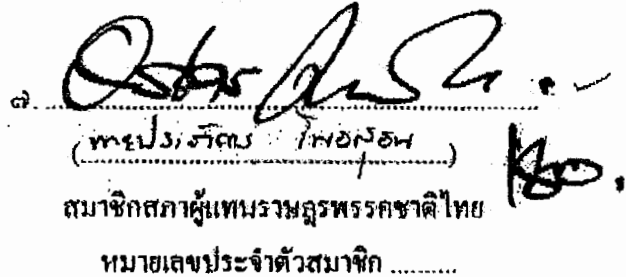 ๗.
(นายประภัตร โพธสุธน)
สมาชิกสภาผู้แทนราษฎรพรรคชาติไทย
หมายเลขประจำตัวสมาชิก ........